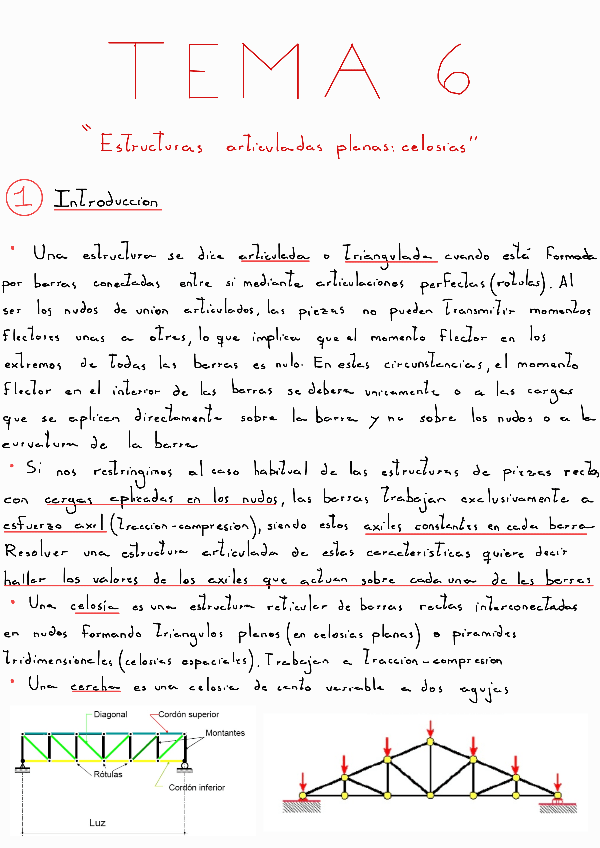 TEMA 6
"Estructuras articuladas planas: celosias"
1 Introduccion
• Una estructura se dice articulada o triangulada cuando está formada
por barras conectadas entre si mediante articulaciones perfectas (rotulas). Al
ser los nudos de union articulados, las piezas no pueden transmitir momentos
flectores unas a otras, lo que implica que el momento flector en los
extremos de todas las barras es nulo. En estas circunstancias, el momento
flector en el interior de las barras se debera unicamente o a las cargas
que se aplican directamente sobre la barra y no sobre los nudos o a la
curvatura de la barra
• Si nos restringimos al caso habitual de las estructuras de piezas rectas
con cargas aplicadas en los nudos, las barras trabajan exclusivamente a
esfuerzo axil (traccion-compresion), siendo estos axiles constantes en cada barra
Resolver una estructura articulada de estas caracteristicas quiere decir
hallar los valores de los axiles que actuan sobre cada una de las barras
• Una celosia es una estructura reticular de barras rectas interconectadas
en nudos formando triangulos planos (en celosias planas) o piramides
tridimensionales (celosias espaciales). Trabajan a traccion-compresion
• Una cercha es una celosia de canto variable a dos agujas
Diagonal
Cordón superior
Montantes
Rótulas
Cordón inferior
Luz